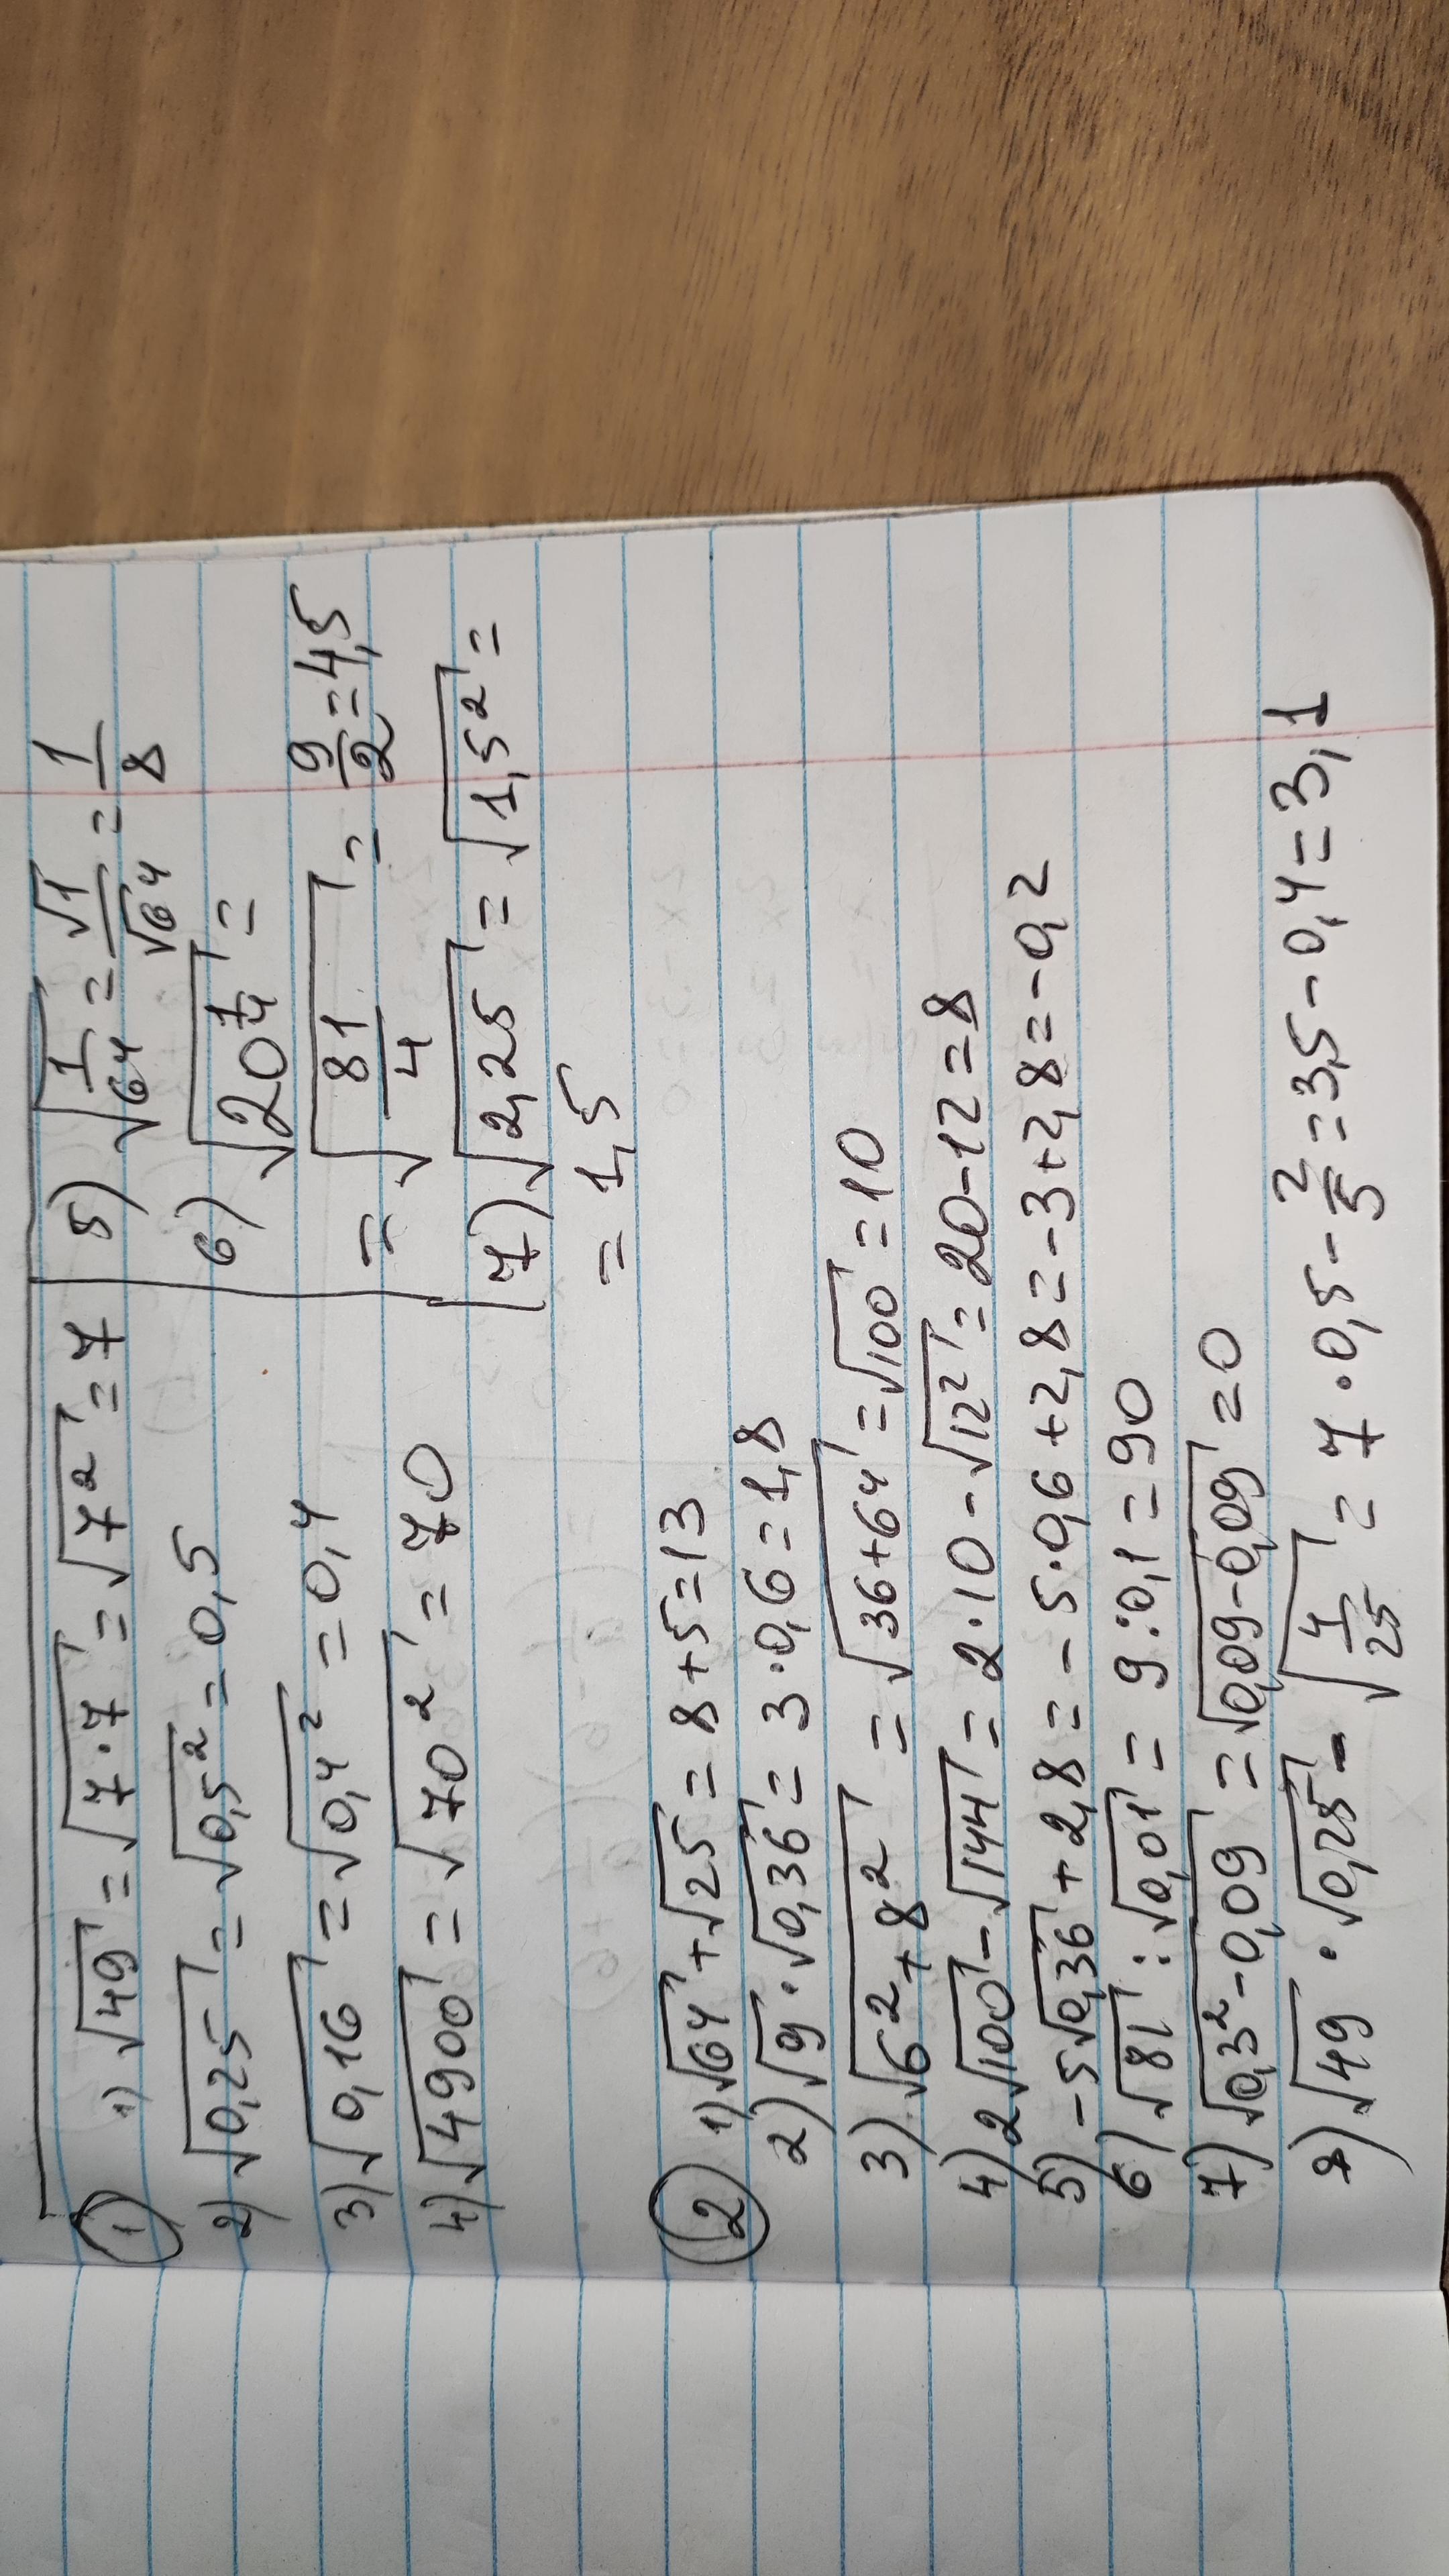 ① 1) √49 = √7·7 = √7² = 7
2) √0,25 = √0,5² = 0,5
3) √0,16 = √0,4² = 0,4
4) √4900 = √70² = 70
5) √1/64 = √1/√64 = 1/8
6) √20 1/4 =
= √81/4 = 9/2 = 4,5
7) √2,25 = √1,5² =
= 1,5
② 1) √64 + √25 = 8 + 5 = 13
2) √9 · √0,36 = 3 · 0,6 = 1,8
3) √6² + 8² = √36 + 64 = √100 = 10
4) 2√100 - √144 = 2 · 10 - √12² = 20 - 12 = 8
5) -5√0,36 + 2,8 = -5 · 0,6 + 2,8 = -3 + 2,8 = -0,2
6) √81 : √0,01 = 9 : 0,1 = 90
7) √0,3² - 0,09 = √0,09 - 0,09 = 0
8) √49 · √0,25 - √4/25 = 7 · 0,5 - 2/5 = 3,5 - 0,4 = 3,1